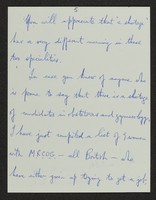 5
You will appreciate that "a shortage"
has a very different meaning in these
two specialities.
In case you know of anyone who
is prone to say that there is a shortage
of candidates in obstetrics and gynaecology,
I have just compiled a list of 9 women
with MRCOG – all British – who
have either given up trying to get a job